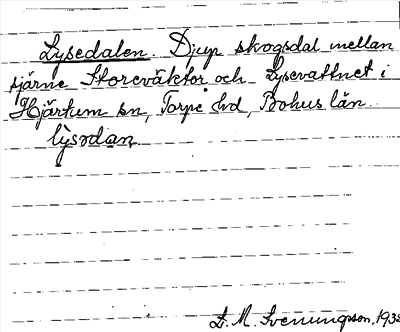 Lysedalen. Djup skogsdal mellan
tjärne Storeväktor och Lysevattnet i
Hjärtum sn, Torpe hd, Bohus län.
lysədan
L. M. Svenungsson. 193